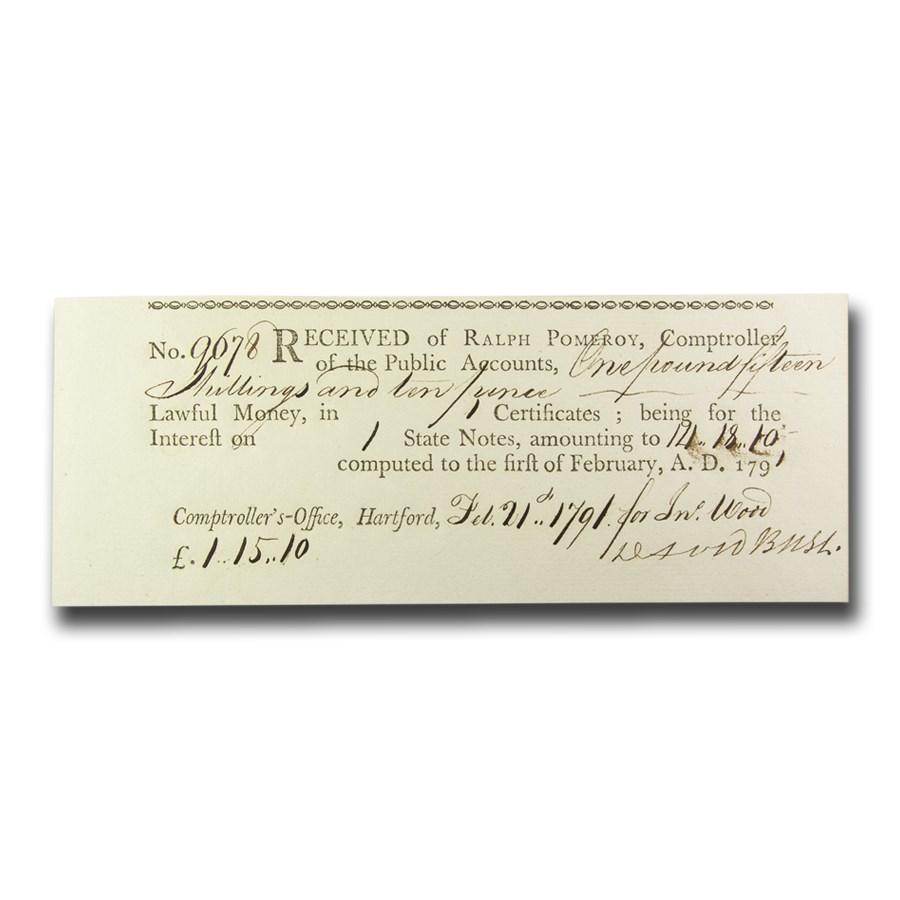 No. 9678 RECEIVED of RALPH POMEROY, Comptroller
of the Public Accounts, One pound fifteen
Shillings and ten pence
Lawful Money, in 1 Certificates ; being for the
Intereſt on 1 State Notes, amounting to 14.. 18.. 10
computed to the firſt of February, A. D. 1791
Comptroller's-Office, Hartford, Feb. 21st.. 1791. for Jno. Wood
£. 1.. 15.. 10 David Bush.